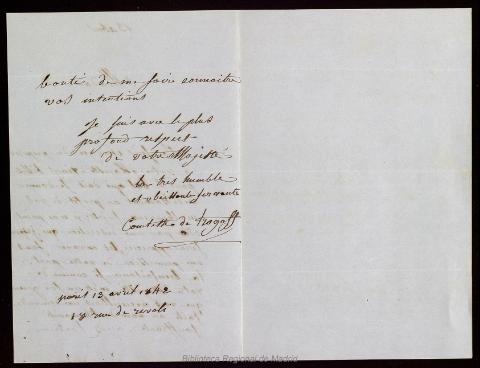 bonté de me faire connaitre
vos intentions
Je suis avec le plus
profond respect
de votre Majesté
la très humble
et obéissante servante
Comtesse de
paris 13 avril 1842
18 rue de rivoli
Biblioteca Regional de Madrid